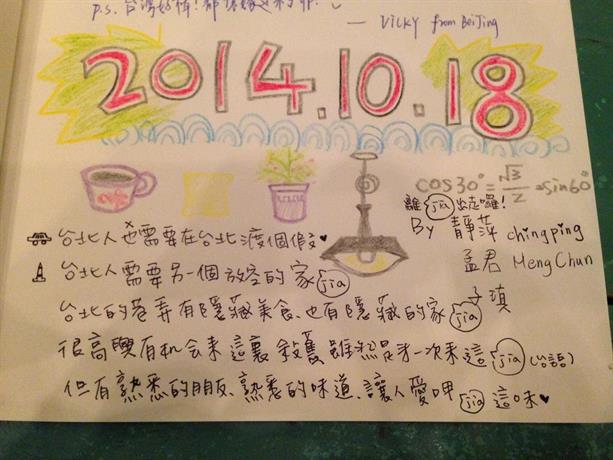 p.s. 台灣好棒!
— VICKY from BeiJing
2014.10.18
cos30°=√3/2=sin60°
離 jia 出走囉!
By 靜萍 chingping
孟君 MengChun
子瑱
台北人也需要在台北渡個假 ♥
台北人需要另一個放空的家 jia
台北的巷弄有隱藏美食、也有隱藏的家 jia
很高興有机会來這裏 敘舊 雖然是才一次來這 jia (台語)
但有熟悉的朋友、熟悉的味道、讓人愛呷 jia 這味 ♥